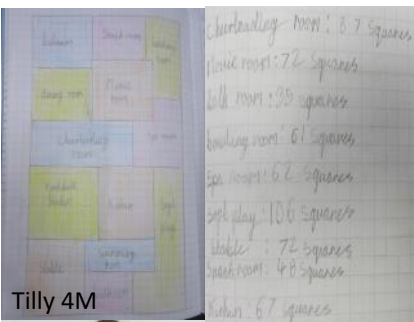 Bathroom
Snack room
bowling room
dining room
Movie room
Cheerleading room
Spa room
Kitchen
Soft play
Stable
Swimming pool
Tilly 4M
Cheerleading room: 87 squares
Movie room: 72 squares
Bath room: 35 squares
bowling room: 61 squares
Spa room: 62 squares
soft play: 106 squares
Stable: 72 squares
Snack room: 48 squares
Kichen: 67 squares